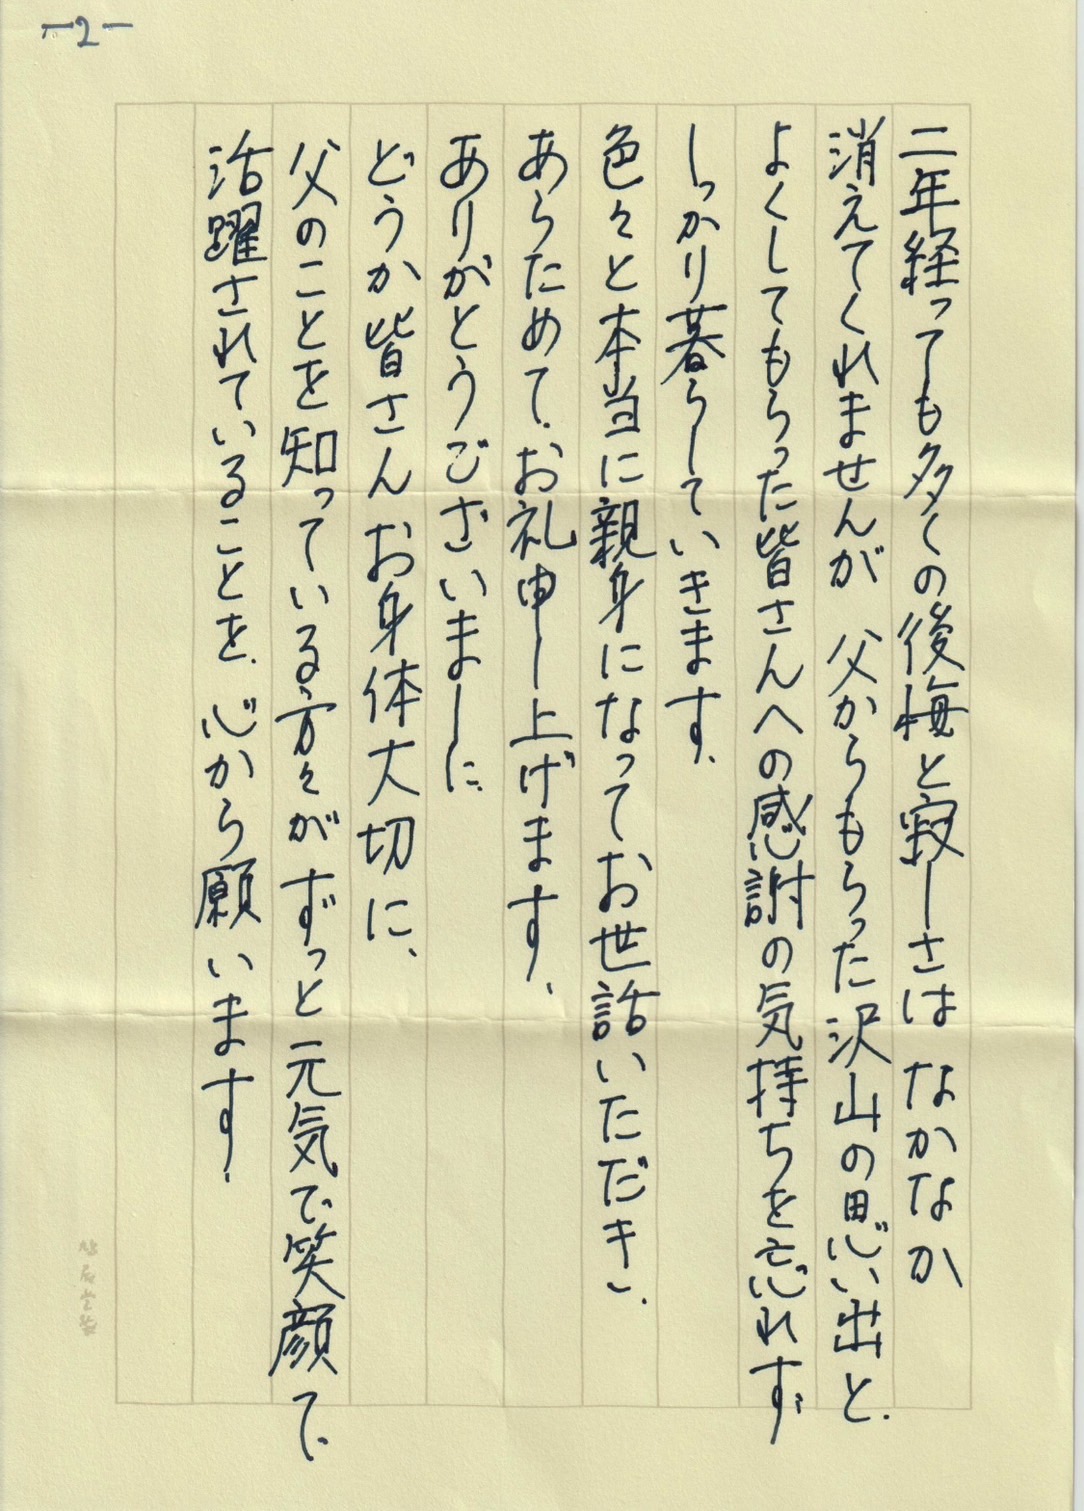 -2-
二年経っても多くの後悔と寂しさは なかなか
消えてくれませんが 父からもらった沢山の思い出と、
よくしてもらった皆さんへの感謝の気持ちを忘れず
しっかり暮らしていきます。
色々と本当に親身になってお世話いただき、
あらためて、お礼申し上げます。
ありがとうございました。
どうか皆さんお身体大切に、
父のことを知っている方々がずっと元気で笑顔で、
活躍されていることを、心から願います。